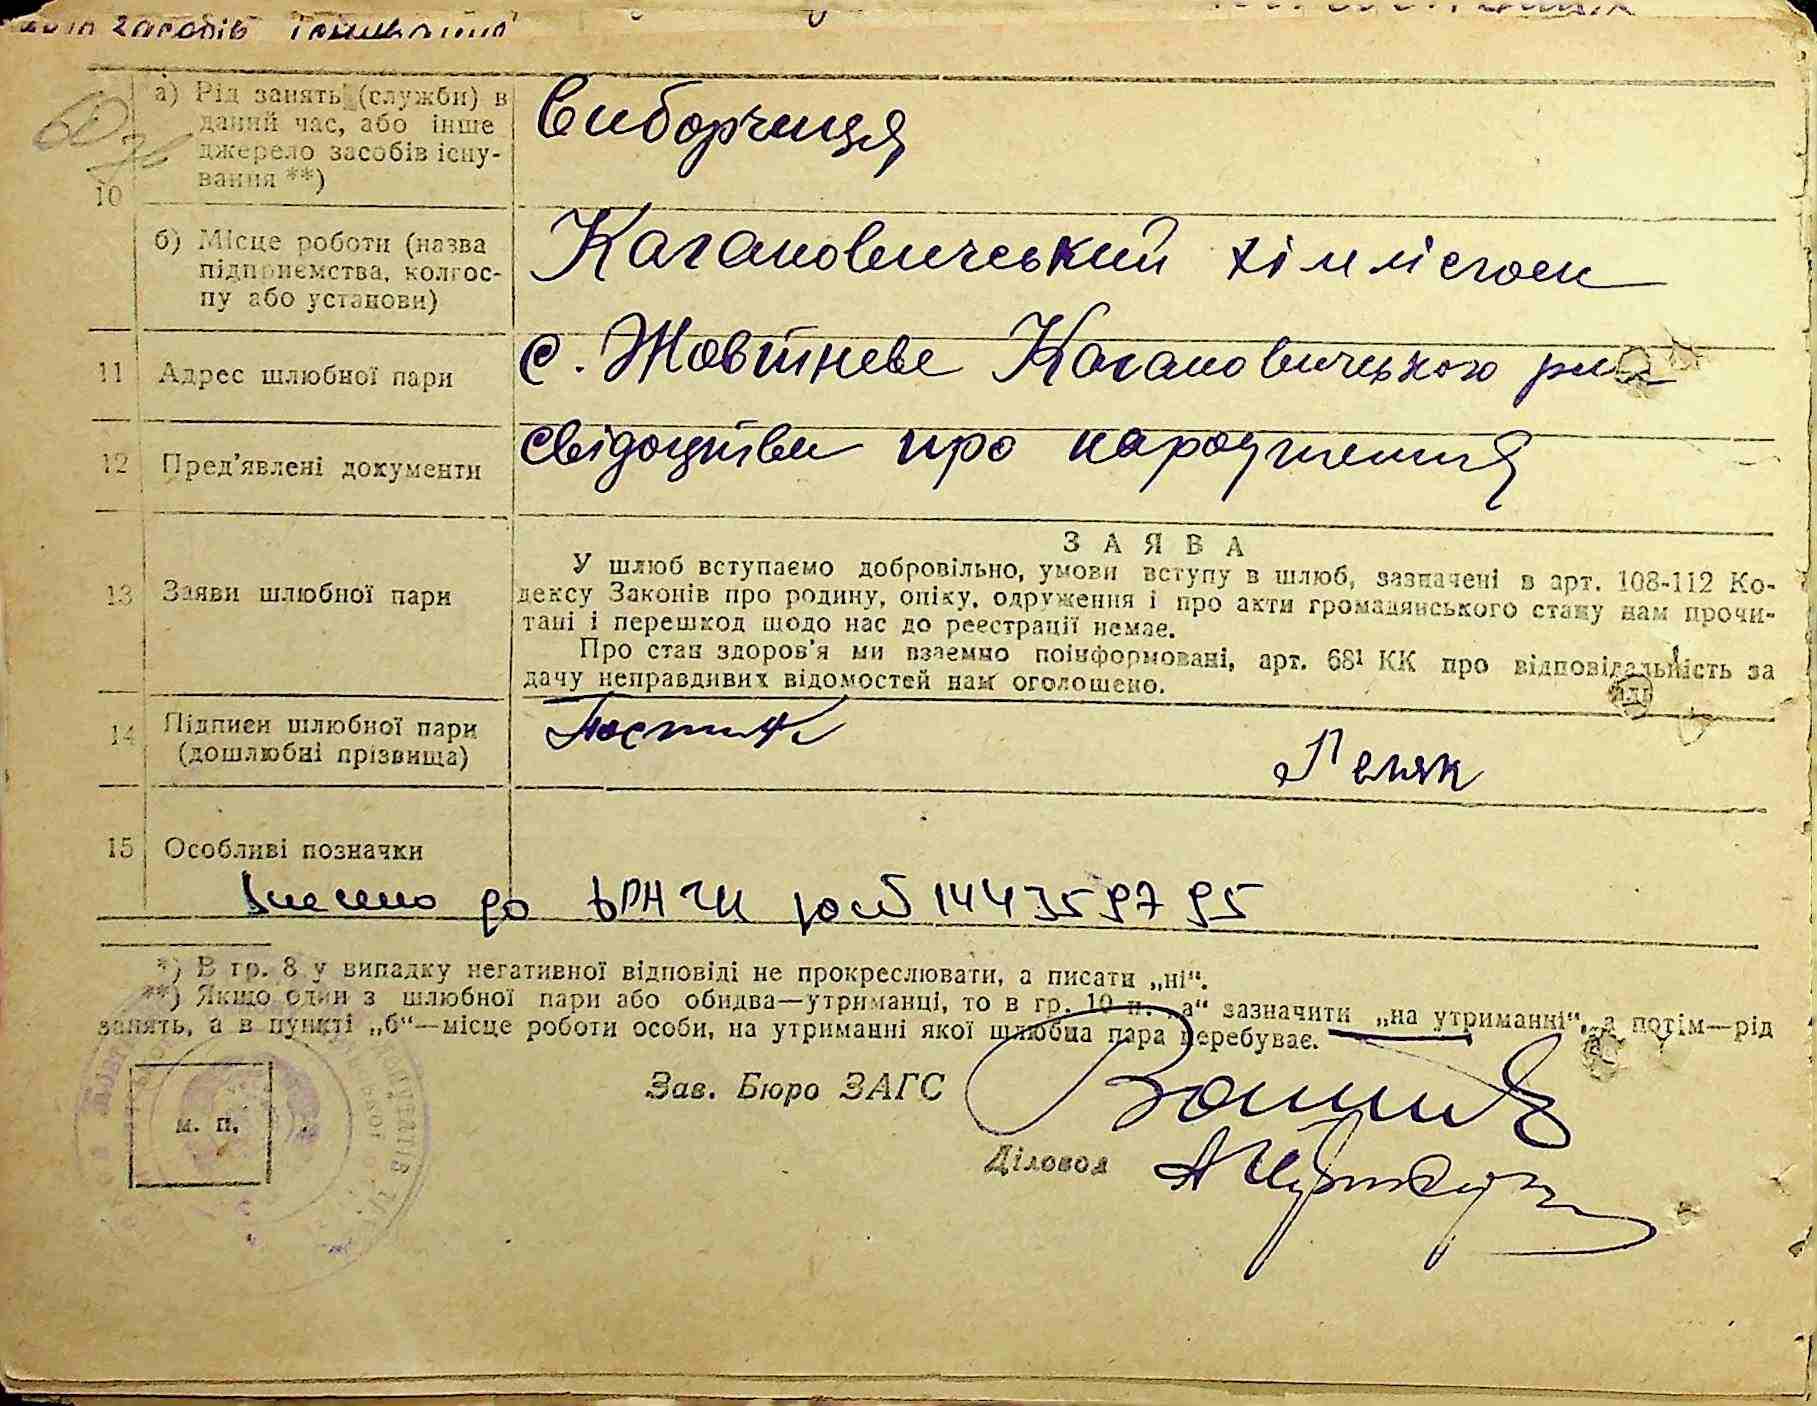 засобів існування
а) Рід занять (службн) в
даний час, або інше
джерело засобів існу-
вання **)
Виборчиця
10
б) Місце роботи (назва
підприємства, колгос-
пу або установи)
Кагановичський хімлісгосп
11 Адрес шлюбної пари
с. Жовтневе Кагановичського р-ну
12 Пред’явлені документи
свідоцтви про народження
З А Я В А
13 Заяви шлюбної пари
У шлюб вступаємо добровільно, умови вступу в шлюб, зазначені в арт. 108-112 Ко-
дексу Законів про родину, опіку, одруження і про акти громадянського стану нам прочи-
тані і перешкод щодо нас до реєстрації немає.
Про стан здоров’я ми взаємно поінформовані, арт. 68¹ КК про відповідальність за
дачу неправдивих відомостей нам оголошено.
14 Підписи шлюбної пари
(дошлюбні прізвища)
15 Особливі позначки
Внесено до 144359795
*) В гр. 8 у випадку негативної відповіді не прокреслювати, а писати „ні“.
**) Якщо один з шлюбної пари або обидва—утриманці, то в гр. 10 п. „а“ зазначити „на утриманні“, а потім—рід
занять, а в пункті „б“—місце роботи особи, на утриманні якої шлюбна пара перебуває.
Зав. Бюро ЗАГС
м. п.
Діловод